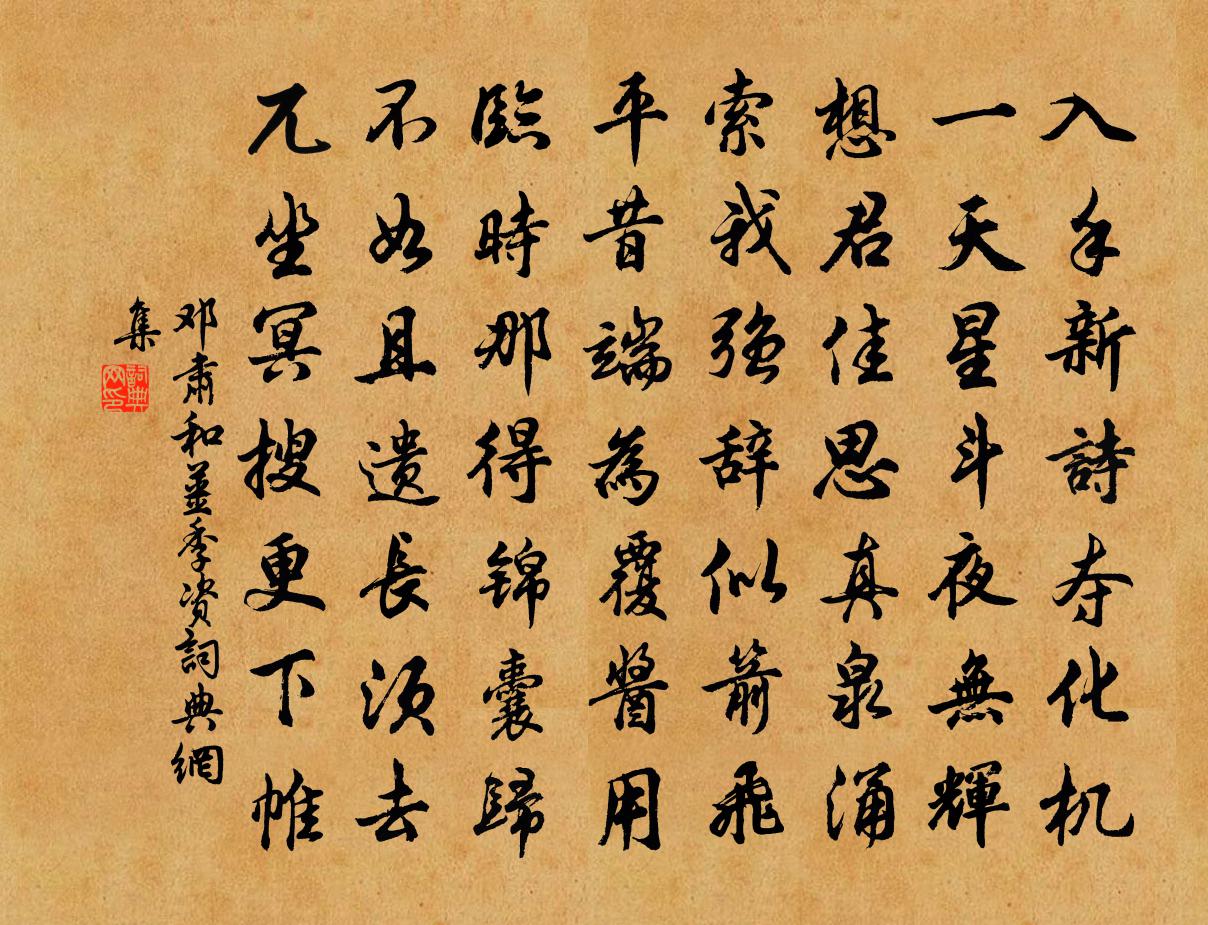 入手新詩夺化机
一天星斗夜無輝
想君佳思真泉涌
索我强辞似箭飛
平昔端為覆醬用
臨時那得锦囊歸
不如且遗長须去
兀坐冥搜更下帷
邓肃和並季资詞典網
集
詞典网印